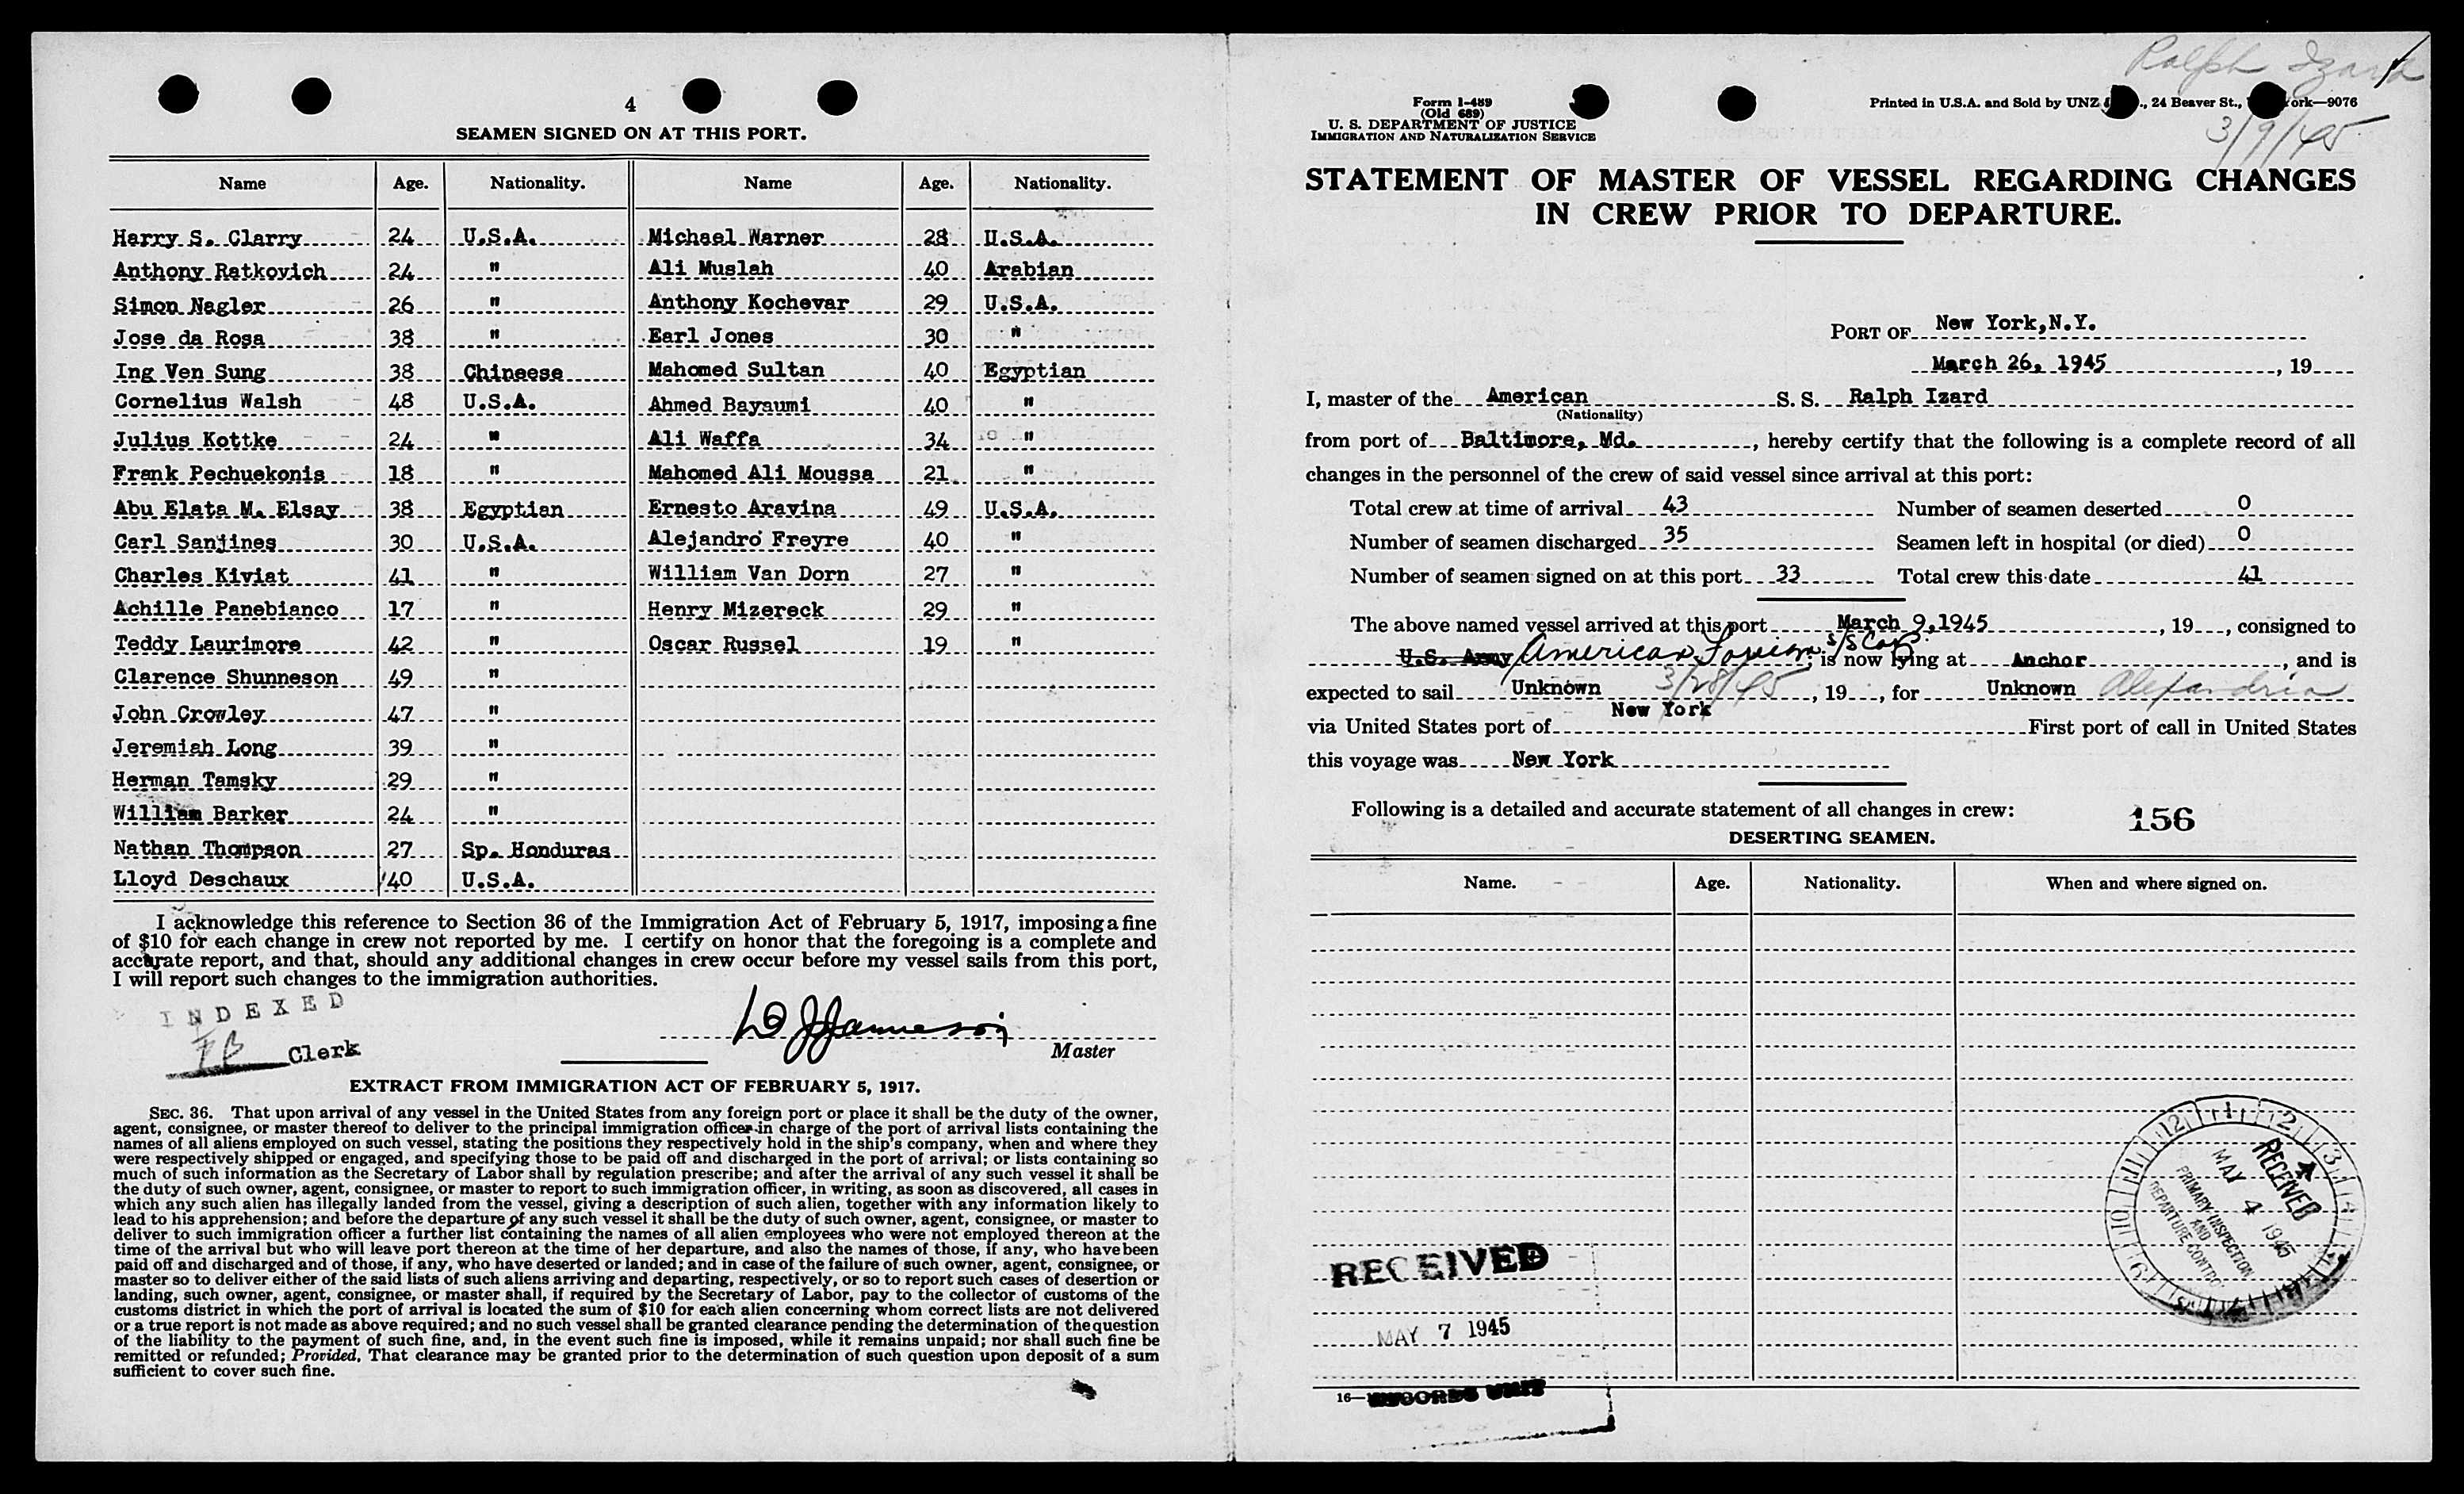 4
SEAMEN SIGNED ON AT THIS PORT.
Name Age. Nationality. Name Age. Nationality.
Harry S. Clarry 24 U.S.A. Michael Warner 28 U.S.A.
Anthony Ratkovich 24 " Ali Muslah 40 Arabian
Simon Nagler 26 " Anthony Kochevar 29 U.S.A.
Jose da Rosa 38 " Earl Jones 30 "
Ing Ven Sung 38 Chineese Mahomed Sultan 40 Egyptian
Cornelius Walsh 48 U.S.A. Ahmed Bayaumi 40 "
Julius Kottke 24 " Ali Waffa 34 "
Frank Pechuekonis 18 " Mahomed Ali Moussa 21 "
Abu Elata M. Elsay 38 Egyptian Ernesto Aravina 49 U.S.A.
Carl Sanjines 30 U.S.A. Alejandro Freyre 40 "
Charles Kiviat 41 " William Van Dorn 27 "
Achille Panebianco 17 " Henry Mizereck 29 "
Teddy Laurimore 42 " Oscar Russel 19 "
Clarence Shunneson 49 "
John Crowley 47 "
Jeremiah Long 39 "
Herman Tamsky 29 "
William Barker 24 "
Nathan Thompson 27 Sp. Honduras
Lloyd Deschaux 40 U.S.A.
I acknowledge this reference to Section 36 of the Immigration Act of February 5, 1917, imposing a fine
of $10 for each change in crew not reported by me. I certify on honor that the foregoing is a complete and
accurate report, and that, should any additional changes in crew occur before my vessel sails from this port,
I will report such changes to the immigration authorities.
INDEXED
FB Clerk
Master
EXTRACT FROM IMMIGRATION ACT OF FEBRUARY 5, 1917.
SEC. 36. That upon arrival of any vessel in the United States from any foreign port or place it shall be the duty of the owner,
agent, consignee, or master thereof to deliver to the principal immigration officer in charge of the port of arrival lists containing the
names of all aliens employed on such vessel, stating the positions they respectively hold in the ship's company, when and where they
were respectively shipped or engaged, and specifying those to be paid off and discharged in the port of arrival; or lists containing so
much of such information as the Secretary of Labor shall by regulation prescribe; and after the arrival of any such vessel it shall be
the duty of such owner, agent, consignee, or master to report to such immigration officer, in writing, as soon as discovered, all cases in
which any such alien has illegally landed from the vessel, giving a description of such alien, together with any information likely to
lead to his apprehension; and before the departure of any such vessel it shall be the duty of such owner, agent, consignee, or master to
deliver to such immigration officer a further list containing the names of all alien employees who were not employed thereon at the
time of the arrival but who will leave port thereon at the time of her departure, and also the names of those, if any, who have been
paid off and discharged and of those, if any, who have deserted or landed; and in case of the failure of such owner, agent, consignee, or
master so to deliver either of the said lists of such aliens arriving and departing, respectively, or so to report such cases of desertion or
landing, such owner, agent, consignee, or master shall, if required by the Secretary of Labor, pay to the collector of customs of the
customs district in which the port of arrival is located the sum of $10 for each alien concerning whom correct lists are not delivered
or a true report is not made as above required; and no such vessel shall be granted clearance pending the determination of the question
of the liability to the payment of such fine, and, in the event such fine is imposed, while it remains unpaid; nor shall such fine be
remitted or refunded; Provided, That clearance may be granted prior to the determination of such question upon deposit of a sum
sufficient to cover such fine.
Ralph Izard
3/9/45
Form I-489
(Old 689)
U. S. DEPARTMENT OF JUSTICE
IMMIGRATION AND NATURALIZATION SERVICE
Printed in U.S.A. and Sold by UNZ ., 24 Beaver St., ork—9076
STATEMENT OF MASTER OF VESSEL REGARDING CHANGES
IN CREW PRIOR TO DEPARTURE.
PORT OF New York, N.Y.
March 26, 1945, 19
I, master of the American S. S. Ralph Izard
(Nationality)
from port of Baltimore, Md., hereby certify that the following is a complete record of all
changes in the personnel of the crew of said vessel since arrival at this port:
Total crew at time of arrival 43 Number of seamen deserted 0
Number of seamen discharged 35 Seamen left in hospital (or died) 0
Number of seamen signed on at this port 33 Total crew this date 41
The above named vessel arrived at this port March 9, 1945, 19, consigned to
U.S. Army American Foreign S/S Corp., is now lying at Anchor, and is
expected to sail Unknown 3/28/45, 19, for Unknown Alexandria
via United States port of New York First port of call in United States
this voyage was New York
Following is a detailed and accurate statement of all changes in crew:
156
DESERTING SEAMEN.
Name. Age. Nationality. When and where signed on.
RECEIVED
MAY 4 1945
PRIMARY INSPECTION
AND
DEPARTURE CONTROL
RECEIVED
MAY 7 1945
RECORDS UNIT
16—